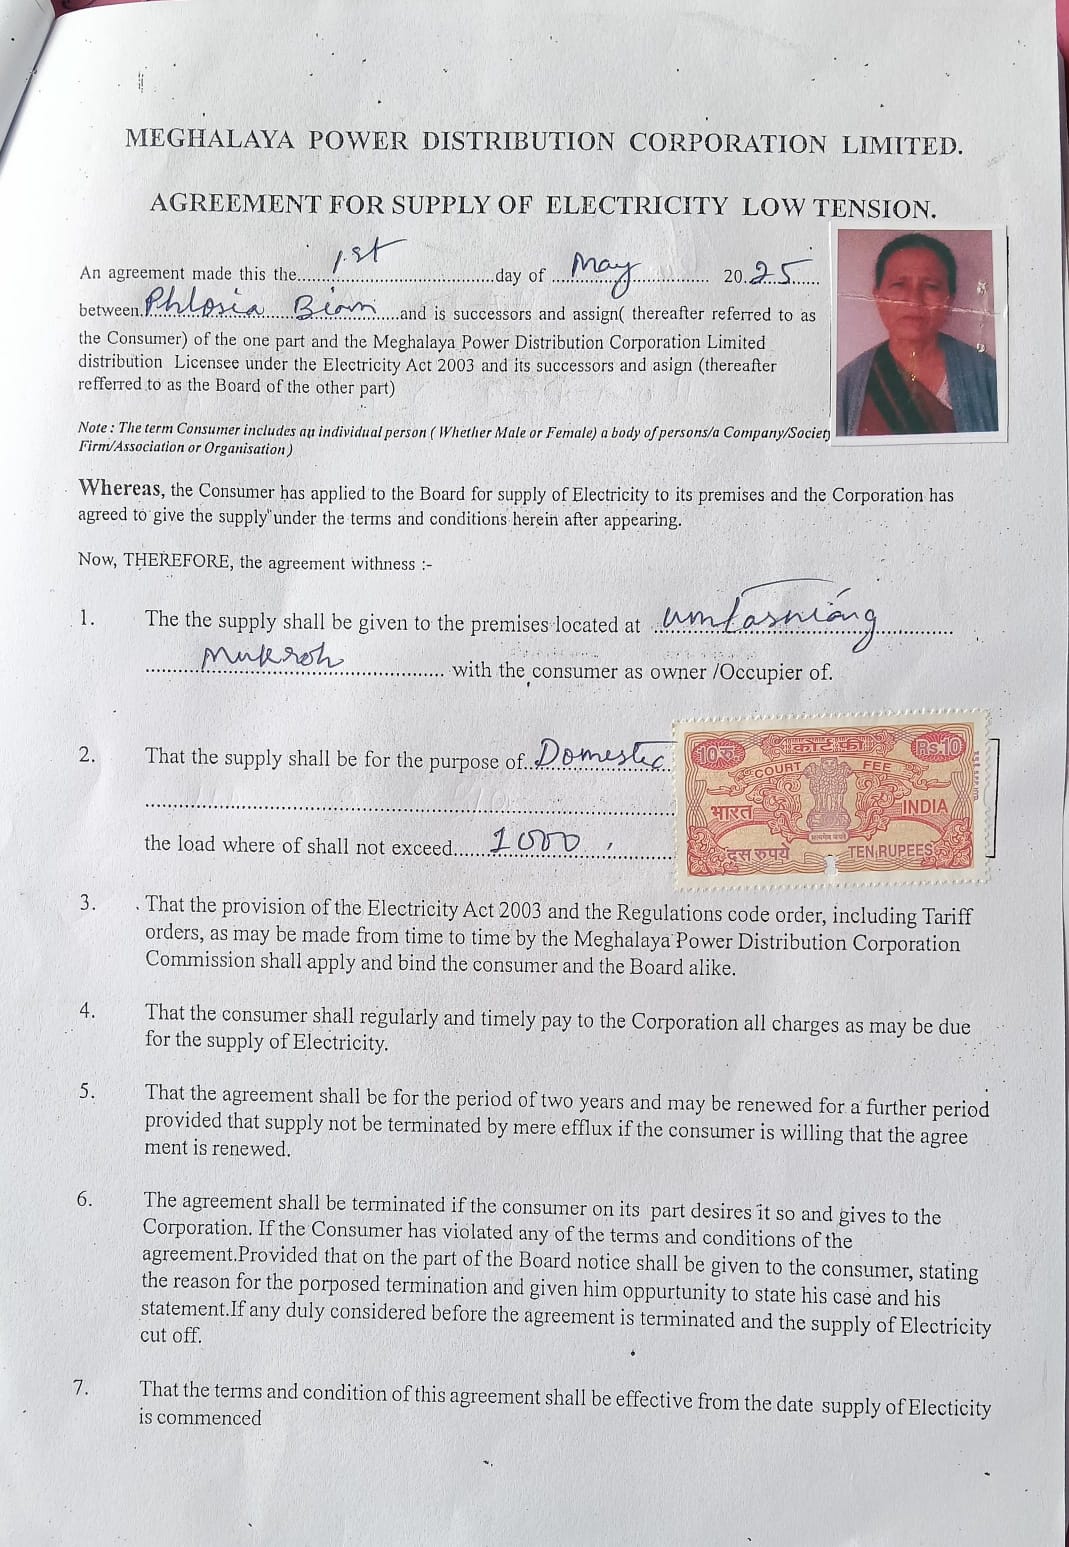 MEGHALAYA POWER DISTRIBUTION CORPORATION LIMITED.
AGREEMENT FOR SUPPLY OF ELECTRICITY LOW TENSION.
An agreement made this the.....1st.....day of .....May..... 20.25......
between.Phlosia Biam.....and is successors and assign( thereafter referred to as
the Consumer) of the one part and the Meghalaya Power Distribution Corporation Limited
distribution Licensee under the Electricity Act 2003 and its successors and asign (thereafter
refferred to as the Board of the other part)
Note : The term Consumer includes an individual person ( Whether Male or Female) a body of persons/a Company/Society
Firm/Association or Organisation )
Whereas, the Consumer has applied to the Board for supply of Electricity to its premises and the Corporation has
agreed to give the supply under the terms and conditions herein after appearing.
Now, THEREFORE, the agreement withness :-
1. The the supply shall be given to the premises located at .....umtasniang.....
.....Mukroh..... with the consumer as owner /Occupier of.
2. That the supply shall be for the purpose of..Domestic
the load where of shall not exceed.....1000.....
10रु. कोर्ट फी Rs.10
COURT FEE
भारत INDIA
सत्यमेव जयते
दस रुपये TEN RUPEES
3. That the provision of the Electricity Act 2003 and the Regulations code order, including Tariff
orders, as may be made from time to time by the Meghalaya Power Distribution Corporation
Commission shall apply and bind the consumer and the Board alike.
4. That the consumer shall regularly and timely pay to the Corporation all charges as may be due
for the supply of Electricity.
5. That the agreement shall be for the period of two years and may be renewed for a further period
provided that supply not be terminated by mere efflux if the consumer is willing that the agree
ment is renewed.
6. The agreement shall be terminated if the consumer on its part desires it so and gives to the
Corporation. If the Consumer has violated any of the terms and conditions of the
agreement.Provided that on the part of the Board notice shall be given to the consumer, stating
the reason for the porposed termination and given him oppurtunity to state his case and his
statement.If any duly considered before the agreement is terminated and the supply of Electricity
cut off.
7. That the terms and condition of this agreement shall be effective from the date supply of Electicity
is commenced